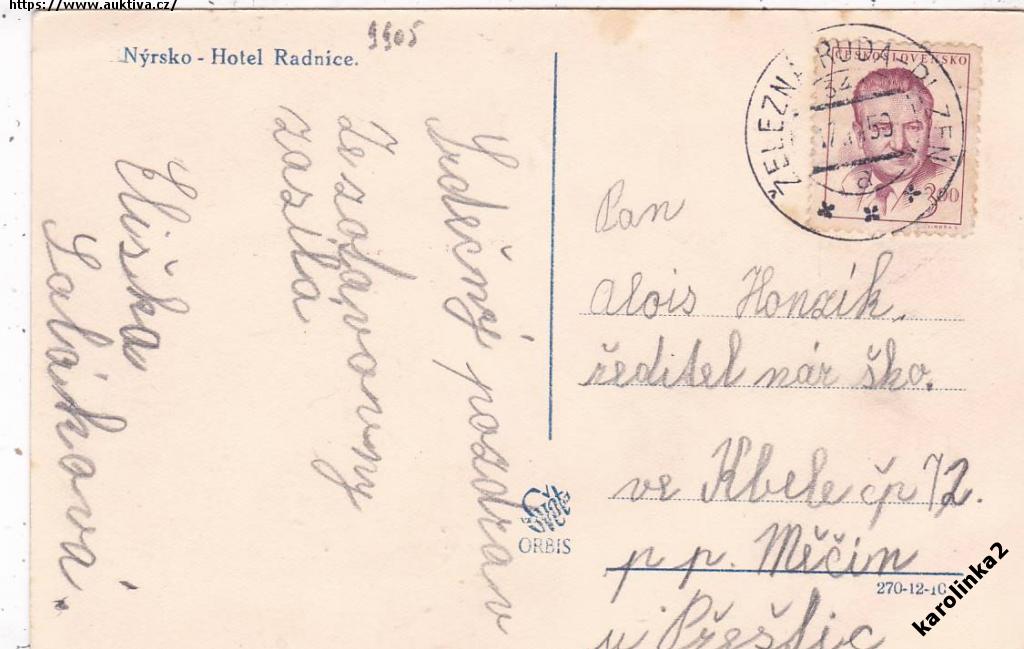 https://www.auktiva.cz/
9905
Nýrsko - Hotel Radnice.
Srdečný pozdrav
ze zotavovny
zasílá
Eliška
Saláková.
ČESKOSLOVENSKO
3.00
ŽELEZNÁ RUDA - PLZEŇ
34
a
Pan
Alois Honzík,
ředitel nár ško.
ve Kbele čp 72.
p p. Měčín
u Přeštic
ORBIS
270-12-10
karolinka2